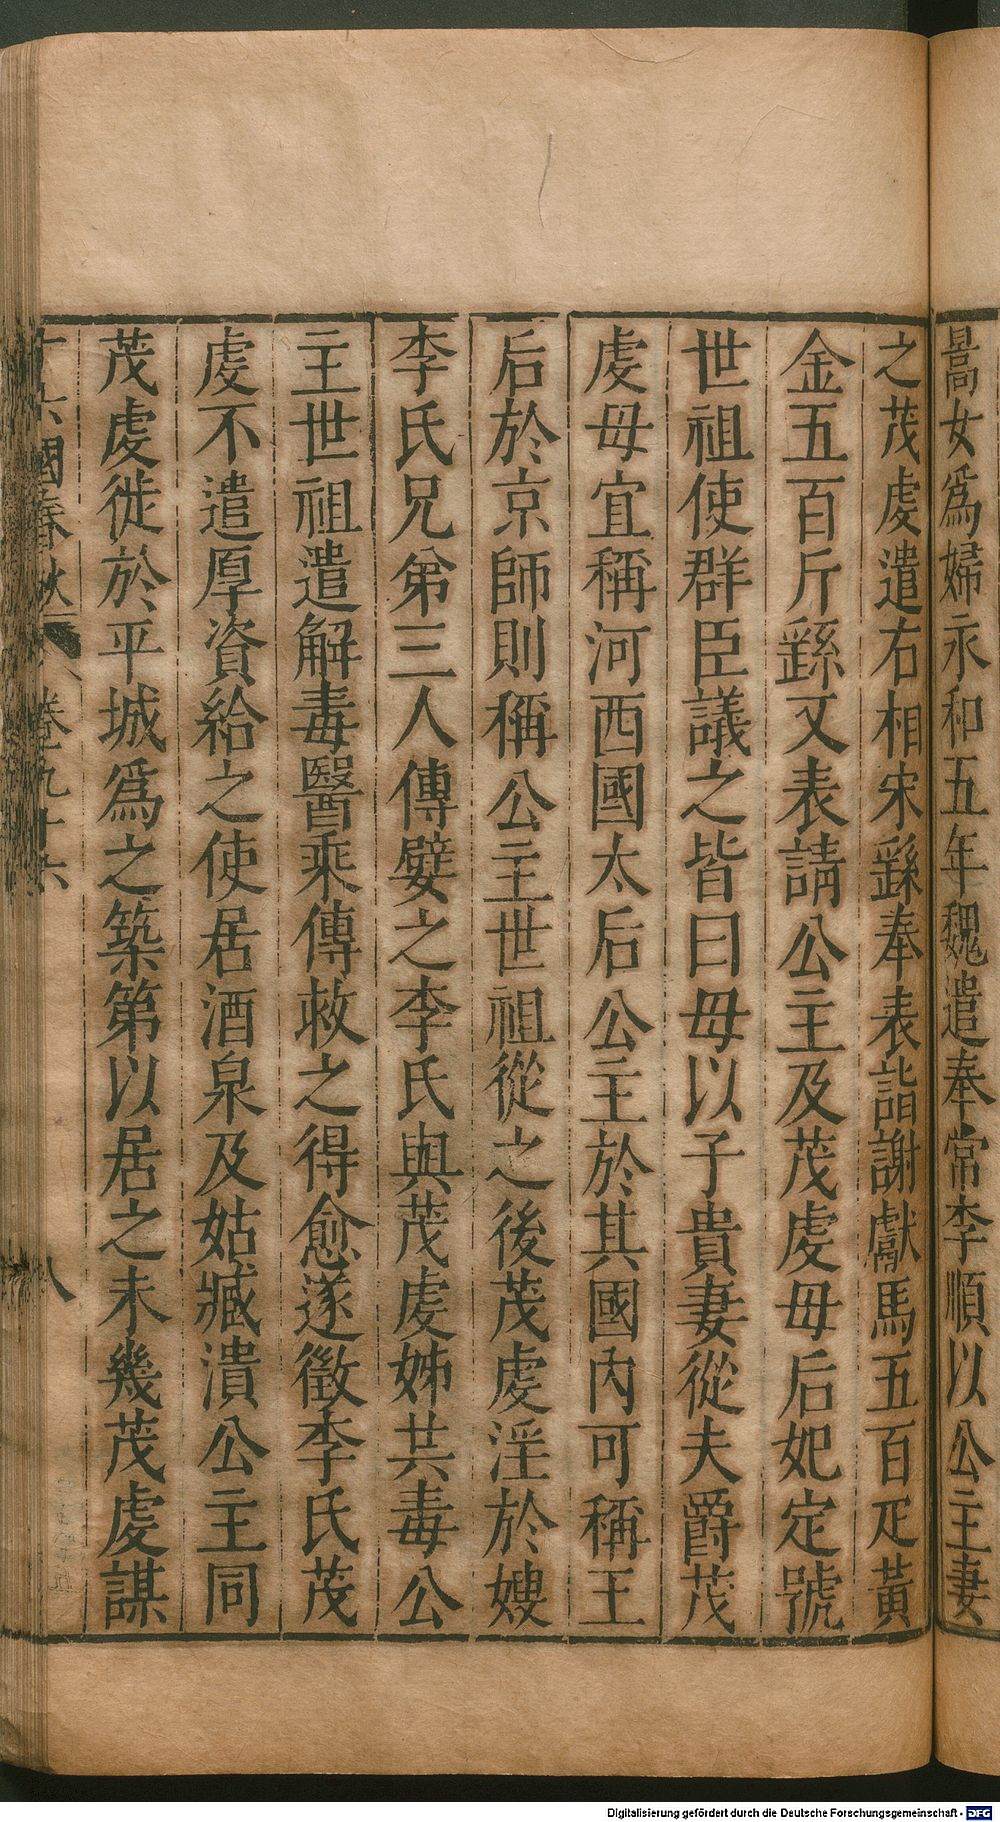 暠女爲婦永和五年魏遣奉常李順以公主妻
之茂虔遣右相宋繇奉表詣謝獻馬五百疋黃
金五百斤繇又表請公主及茂虔母后妃定號
世祖使群臣議之皆曰母以子貴妻從夫爵茂
虔母宜稱河西國太后公主於其國內可稱王
后於京師則稱公主世祖從之後茂虔淫於嫂
李氏兄弟三人傳嬖之李氏與茂虔姊共毒公
主世祖遣解毒醫乘傳救之得愈遂徵李氏茂
虔不遣厚資給之使居酒泉及姑臧潰公主同
茂虔徙於平城爲之築第以居之未幾茂虔謀
十六國春秋 卷九十六 八
Digitalisierung gefördert durch die Deutsche Forschungsgemeinschaft - DFG